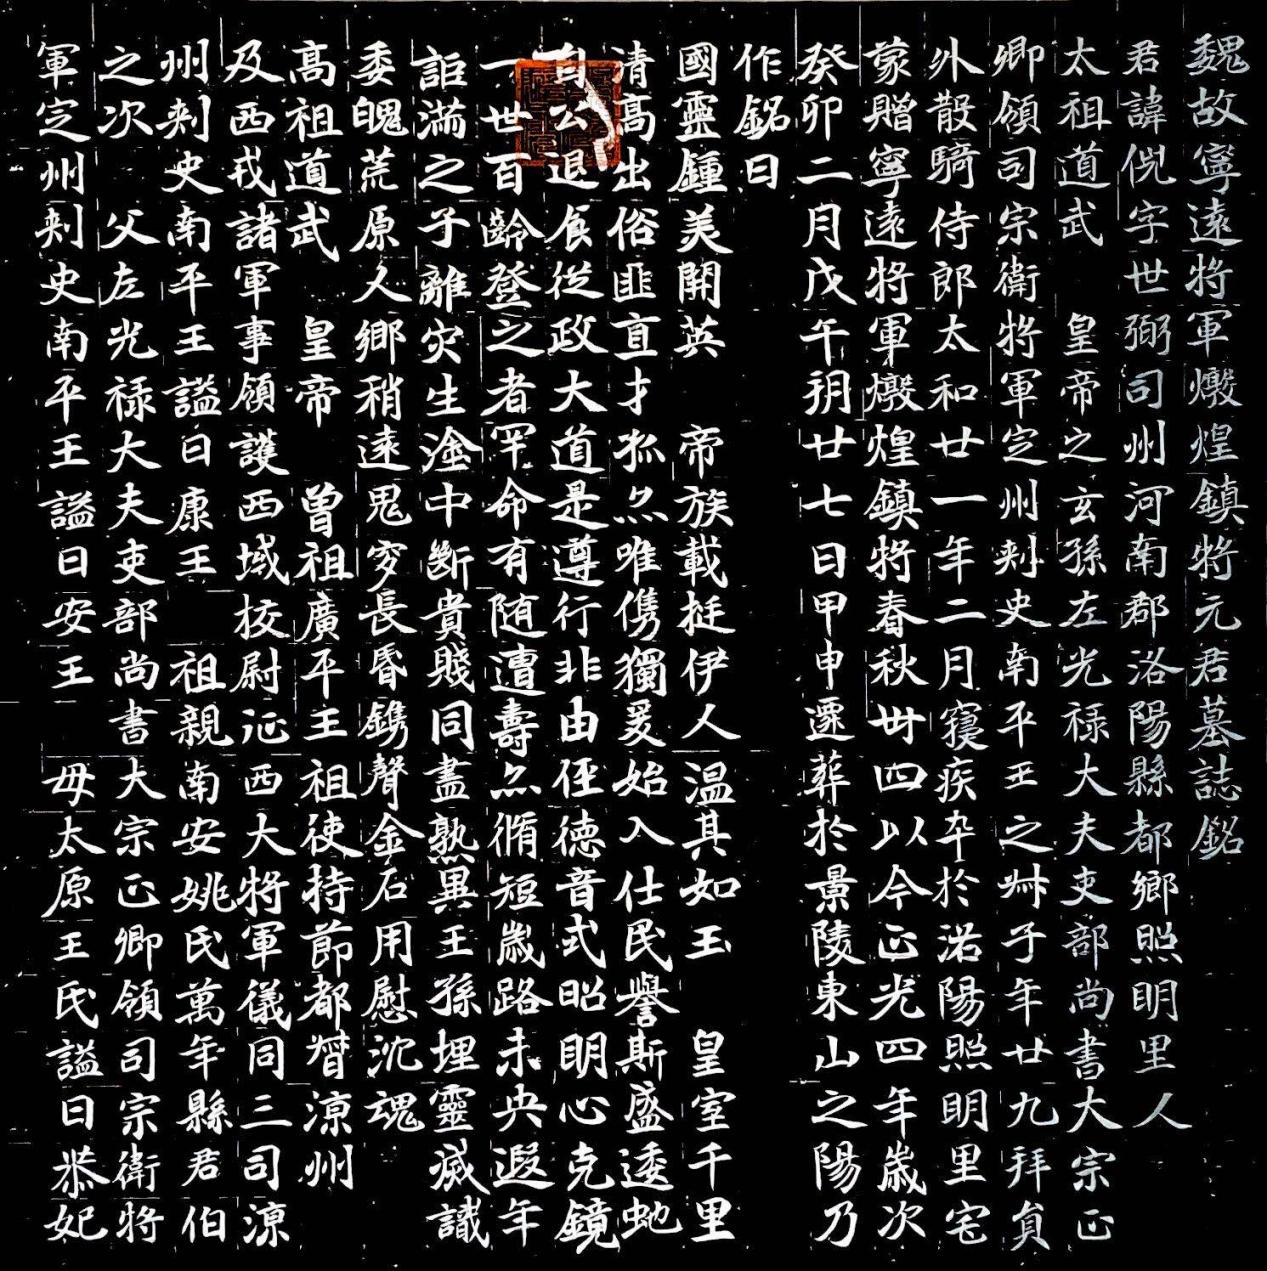 魏故寧遠將軍燉煌鎮將元君墓誌銘
君諱倪字世弼司州河南郡洛陽縣都鄉照明里人
太祖道武 皇帝之玄孫左光祿大夫吏部尚書大宗正
卿領司宗衛將軍定州刺史南平王之叔子年廿九拜員
外散騎侍郎太和廿一年二月寢疾卒於洛陽照明里宅
蒙贈寧遠將軍燉煌鎮將春秋卅四以今正光四年歲次
癸卯二月戊午朔廿七日甲申遷葬於景陵東山之陽乃
作銘曰
國靈鍾美開英 帝族載挺伊人温其如玉 皇室千里
清高出俗匪直才 亦唯儁獨爰始入仕民譽斯盛逶虵
自公退食從政大道是遵行非由径德音式昭明心克鏡
一世百齡登之者罕命有随遭壽亦脩短歲路未央遐年
詎滿之子離灾生塗中斷貴賤同盡熟異王孫埋靈滅識
委魄荒原人鄉稍遠鬼穸長昏鐫聲金石用慰沈魂
高祖道武 皇帝 曾祖廣平王 祖使持節都督涼州
及西戎諸軍事領護西域校尉征西大將軍儀同三司涼
州刺史南平王謚曰康王 祖親南安姚氏萬年縣君伯
之次 父左光祿大夫吏部尚書大宗正卿領司宗衛將
軍定州刺史南平王謚曰安王 母太原王氏謚曰恭妃